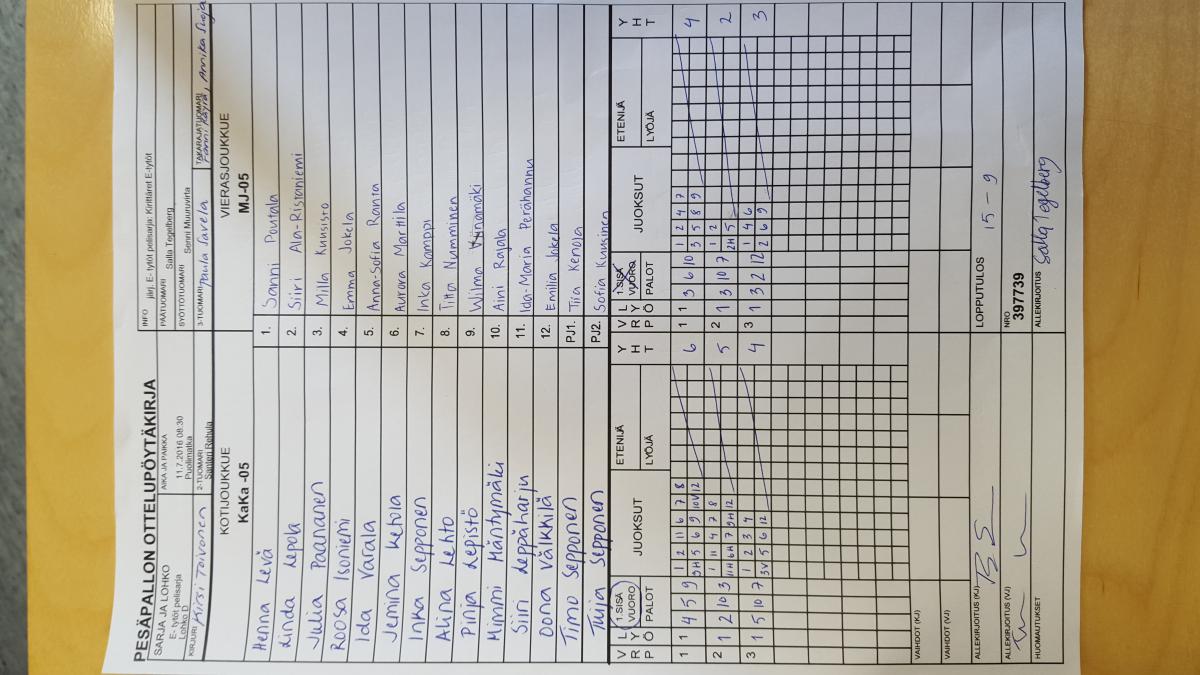 PESÄPALLON OTTELUPÖYTÄKIRJA
SARJA JA LOHKO
E- tytöt pelisarja
Lohko D
AIKA JA PAIKKA
11.7.2016 08:30
Puolimatka
INFO järj. E- tytöt pelisarja: Kirittäret E-tytöt
PÄÄTUOMARI Salla Tegelberg
SYÖTTÖTUOMARI Senni Muuruvirta
KIRJURI Kirsi Toivonen
2-TUOMARI Santeri Rehula
3-TUOMARI Paula Savela
TAKARAJATUOMARI
KOTIJOUKKUE
KaKa -05
VIERASJOUKKUE
MJ-05
Henna Levä 1. Sanni Poutala
Linda Lepola 2. Siiri Ala-Ristaniemi
Julia Paananen 3. Milla Kuusisto
Roosa Isoniemi 4. Emma Jokela
Ida Varala 5. Anna-Sofia Ranta
Jemina Ketola 6. Aurora Marttila
Inka Sepponen 7. Inka Kamppi
Alina Lehto 8. Titta Numminen
Pinja Lepistö 9. Wilma Viinamäki
Mimmi Mäntymäki 10. Aini Rajala
Siiri Leppäharju 11. Ida-Maria Perähannu
Oona Välkkilä 12. Emilia Jokela
Timo Sepponen PJ1. Tiia Kenola
Tuija Sepponen PJ2. Sofia Kuusinen
V R L Y Ö P 1.SISÄ VUORO PALOT JUOKSUT ETENIJÄ LYÖJÄ Y H T
V R L Y Ö P 1.SISÄ VUORO PALOT JUOKSUT ETENIJÄ LYÖJÄ Y H T
1 1 4 5 9 1 2 11 6 7 8 6 1 1 3 6 10 1 2 4 7 4
3H 5 6 9 10V 12 3 5 8 9
2 1 2 10 3 1 11 4 7 8 5 2 1 3 10 7 1 2 2
11H 6H 7 9H 12 2H 5
3 1 5 10 7 1 2 3 4 4 3 1 3 2 12 1 4 6 3
3V 5 6 12 2 6 9
VAIHDOT (KJ)
VAIHDOT (VJ)
ALLEKIRJOITUS (KJ)
LOPPUTULOS 15 - 9
ALLEKIRJOITUS (VJ)
NRO 397739
HUOMAUTUKSET
ALLEKIRJOITUS Salla Tegelberg